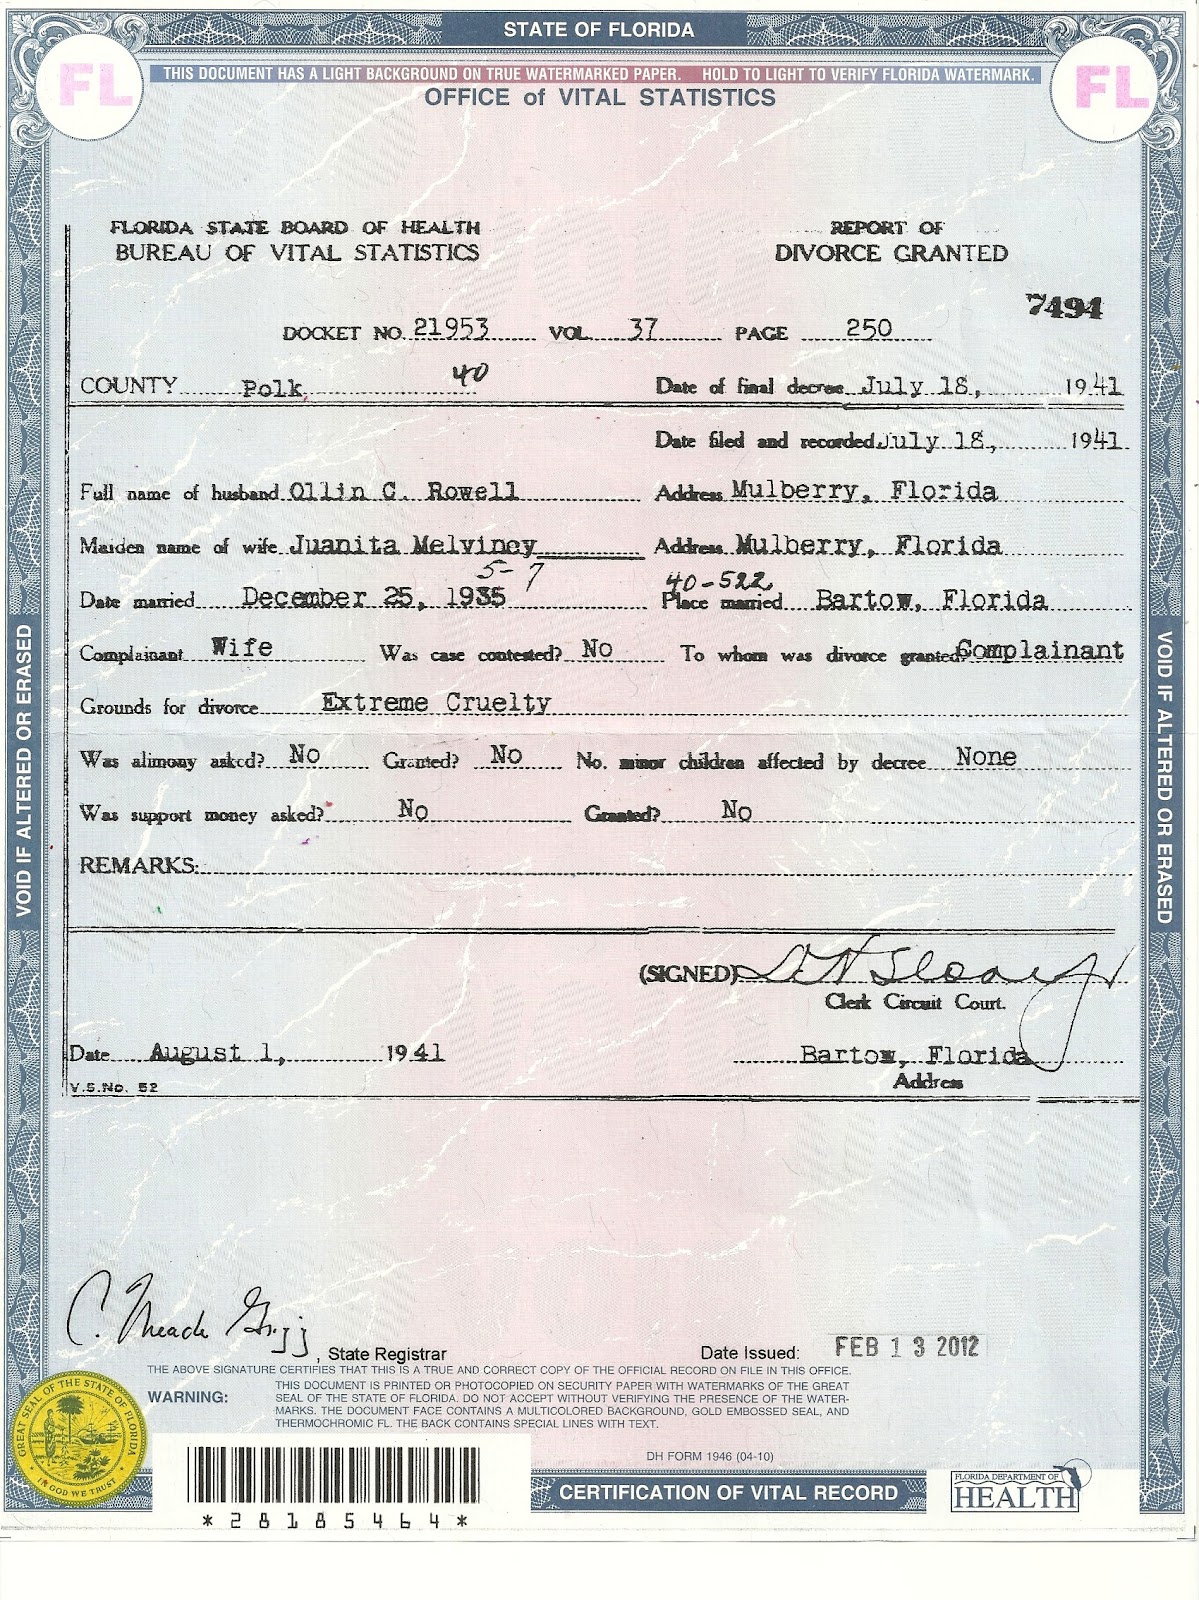 STATE OF FLORIDA
FL
THIS DOCUMENT HAS A LIGHT BACKGROUND ON TRUE WATERMARKED PAPER. HOLD TO LIGHT TO VERIFY FLORIDA WATERMARK.
FL
OFFICE of VITAL STATISTICS
FLORIDA STATE BOARD OF HEALTH
BUREAU OF VITAL STATISTICS
REPORT OF
DIVORCE GRANTED
7494
DOCKET NO. 21953 VOL. 37 PAGE 250
COUNTY Polk, 40 Date of final decree July 18, 1941
Date filed and recorded July 18, 1941
Full name of husband Ollin C. Rowell Address Mulberry, Florida
Maiden name of wife Juanita Melviney Address Mulberry, Florida
5-7 40-522
Date married December 25, 1935 Place married Bartow, Florida
Complainant Wife Was case contested? No To whom was divorce granted? Complainant
Grounds for divorce Extreme Cruelty
Was alimony asked? No Granted? No No. minor children affected by decree None
Was support money asked? No Granted? No
REMARKS:
(SIGNED)
Clerk Circuit Court.
Date August 1, 1941 Bartow, Florida
V.S.No. 52 Address
VOID IF ALTERED OR ERASED
VOID IF ALTERED OR ERASED
C. Meade Grigg
, State Registrar Date Issued: FEB 13 2012
THE ABOVE SIGNATURE CERTIFIES THAT THIS IS A TRUE AND CORRECT COPY OF THE OFFICIAL RECORD ON FILE IN THIS OFFICE.
WARNING: THIS DOCUMENT IS PRINTED OR PHOTOCOPIED ON SECURITY PAPER WITH WATERMARKS OF THE GREAT
SEAL OF THE STATE OF FLORIDA. DO NOT ACCEPT WITHOUT VERIFYING THE PRESENCE OF THE WATER-
MARKS. THE DOCUMENT FACE CONTAINS A MULTICOLORED BACKGROUND, GOLD EMBOSSED SEAL, AND
THERMOCHROMIC FL. THE BACK CONTAINS SPECIAL LINES WITH TEXT.
DH FORM 1946 (04-10)
GREAT SEAL OF THE STATE OF FLORIDA
IN GOD WE TRUST
CERTIFICATION OF VITAL RECORD
FLORIDA DEPARTMENT OF
HEALTH
*28185464*